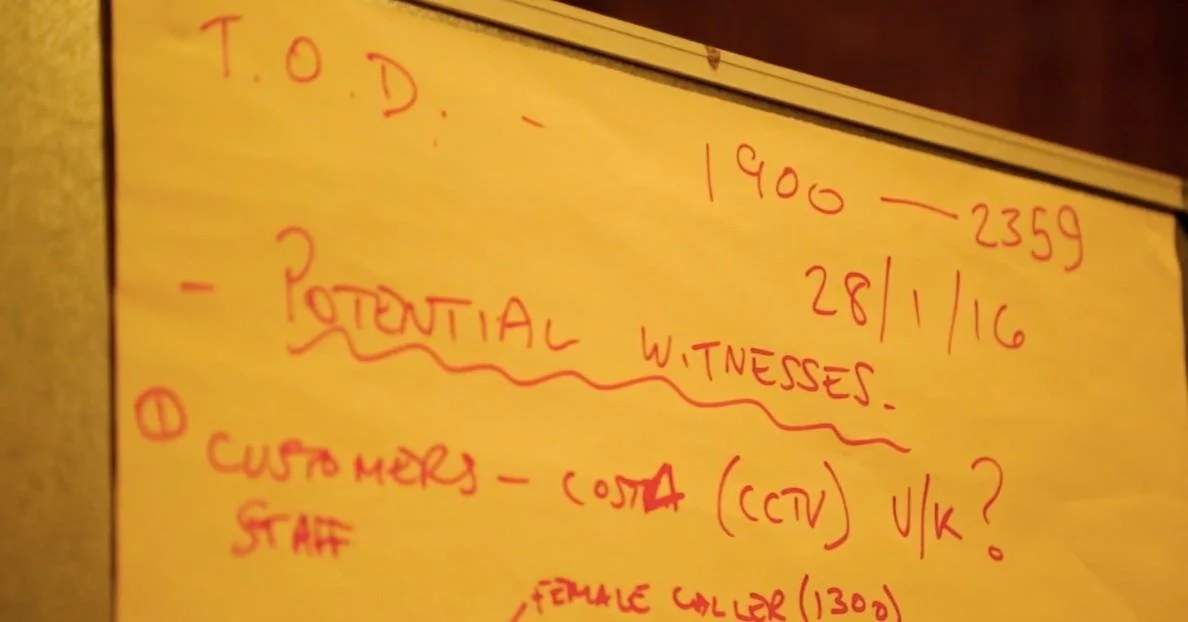 T.O.D. - 1900 — 2359
28/1/16
- POTENTIAL WITNESSES.
① CUSTOMERS - COSTA (CCTV) U/K?
STAFF
FEMALE CALLER (1300)